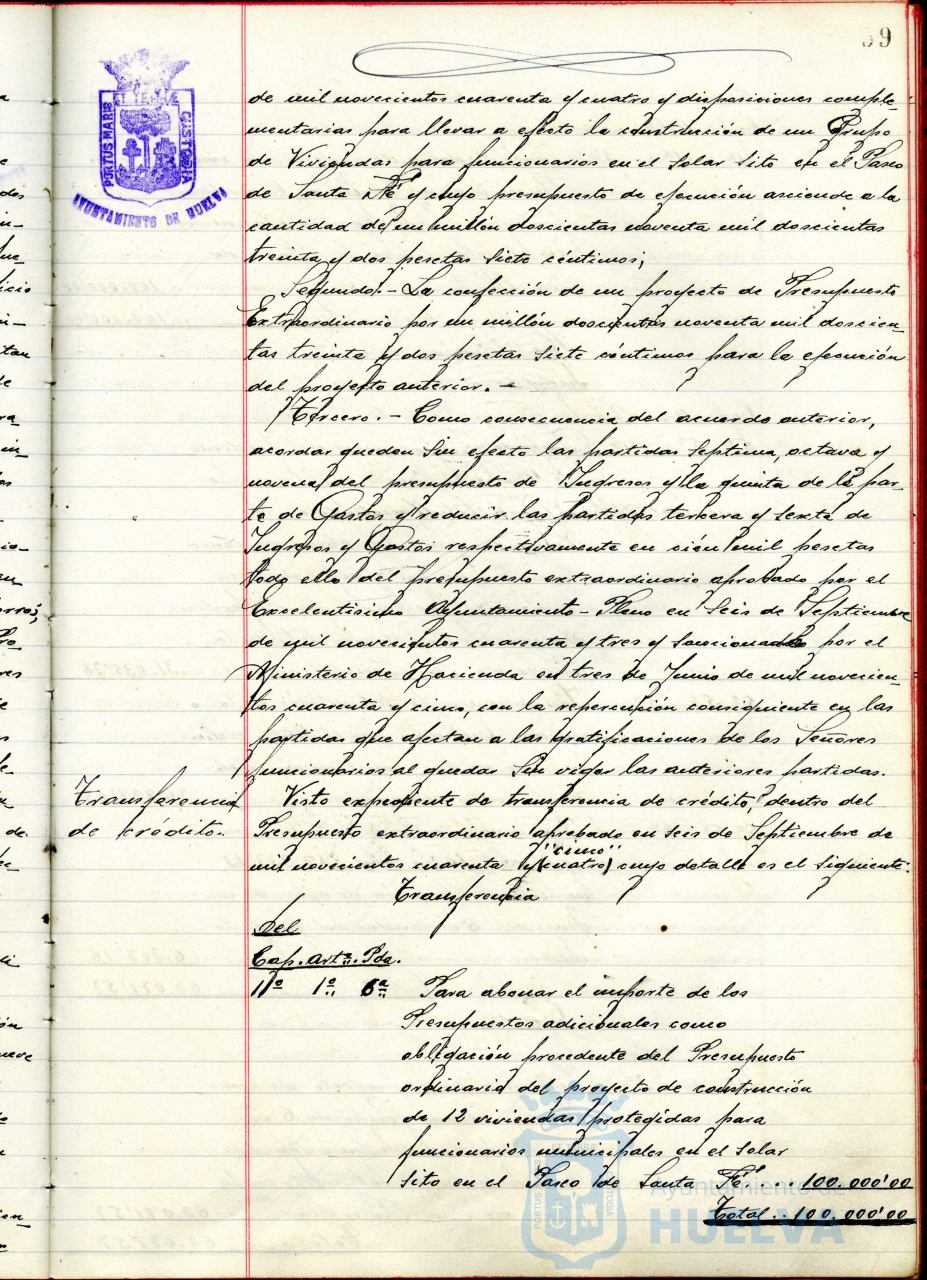 99
PORTUS MARIS ET TERRÆ CUSTODIA
AYUNTAMIENTO DE HUELVA
de mil novecientos cuarenta y cuatro y disposiciones comple-
mentarias para llevar a efecto la construcción de un Grupo
de Viviendas para funcionarios en el solar sito en el Paseo
de Santa Fé y cuyo presupuesto de ejecución asciende a la
cantidad de un millón doscientas noventa mil doscientas
treinta y dos pesetas siete céntimos;
Segundo.- La confección de un proyecto de Presupuesto
Extraordinario por un millón doscientas noventa mil doscien-
tas treinta y dos pesetas siete céntimos para la ejecución
del proyecto anterior.-
Tercero.- Como consecuencia del acuerdo anterior,
acordar queden sin efecto las partidas septima, octava y
novena del presupuesto de Ingresos y la quinta de la par-
te de Gastos y reducir las partidas tercera y sexta de
Ingresos y Gastos respectivamente en cien mil pesetas
todo ello del presupuesto extraordinario aprobado por el
Excelentisimo Ayuntamiento-Pleno en seis de Septiembre
de mil novecientos cuarenta y tres y sancionado por el
Ministerio de Hacienda en tres de Junio de mil novecien-
tos cuarenta y cinco, con la repercusión consiguiente en las
partidas que afectan a las gratificaciones de los Señores
funcionarios al quedar sin vigor las anteriores partidas.
Transferencia
de crédito.
Visto expediente de transferencia de crédito, dentro del
Presupuesto extraordinario aprobado en seis de Septiembre de
"cinco"
mil novecientos cuarenta y (cuatro) cuyo detalle es el siguiente:
Transferencia
Del
Cap. artº. Pda.
11º 1º 6ª Para abonar el importe de los
Presupuestos adicionales como
obligación procedente del Presupuesto
ordinario del proyecto de construcción
de 12 viviendas protegidas para
funcionarios municipales en el solar
sito en el Paseo de Santa Fé. . . 100.000'00
Total . . 100.000'00
Ayuntamiento de
HUELVA